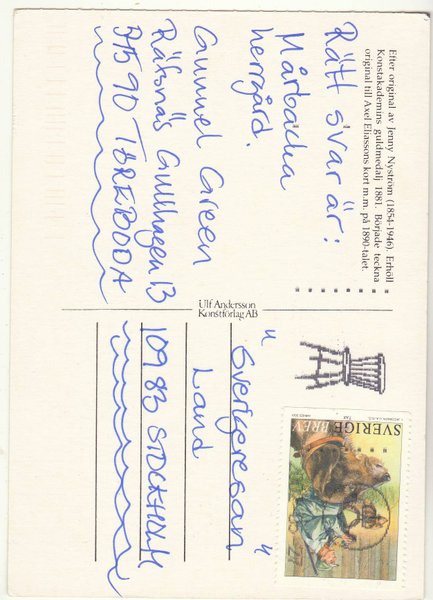 Efter original av Jenny Nyström (1854-1946). Erhöll
Konstakademins guldmedalj 1881. Började teckna
original till Axel Eliassons kort m.m. på 1890-talet.
Rätt svar är:
Mårbacka
herrgård.
Gunnel Green
Räfsnäs Gullhagen 13
545 90 TÖREBODA
Ulf Andersson
Konstförlag AB
"Sverigeresan"
Land
109 83 STOCKHOLM
SVERIGE
BREV